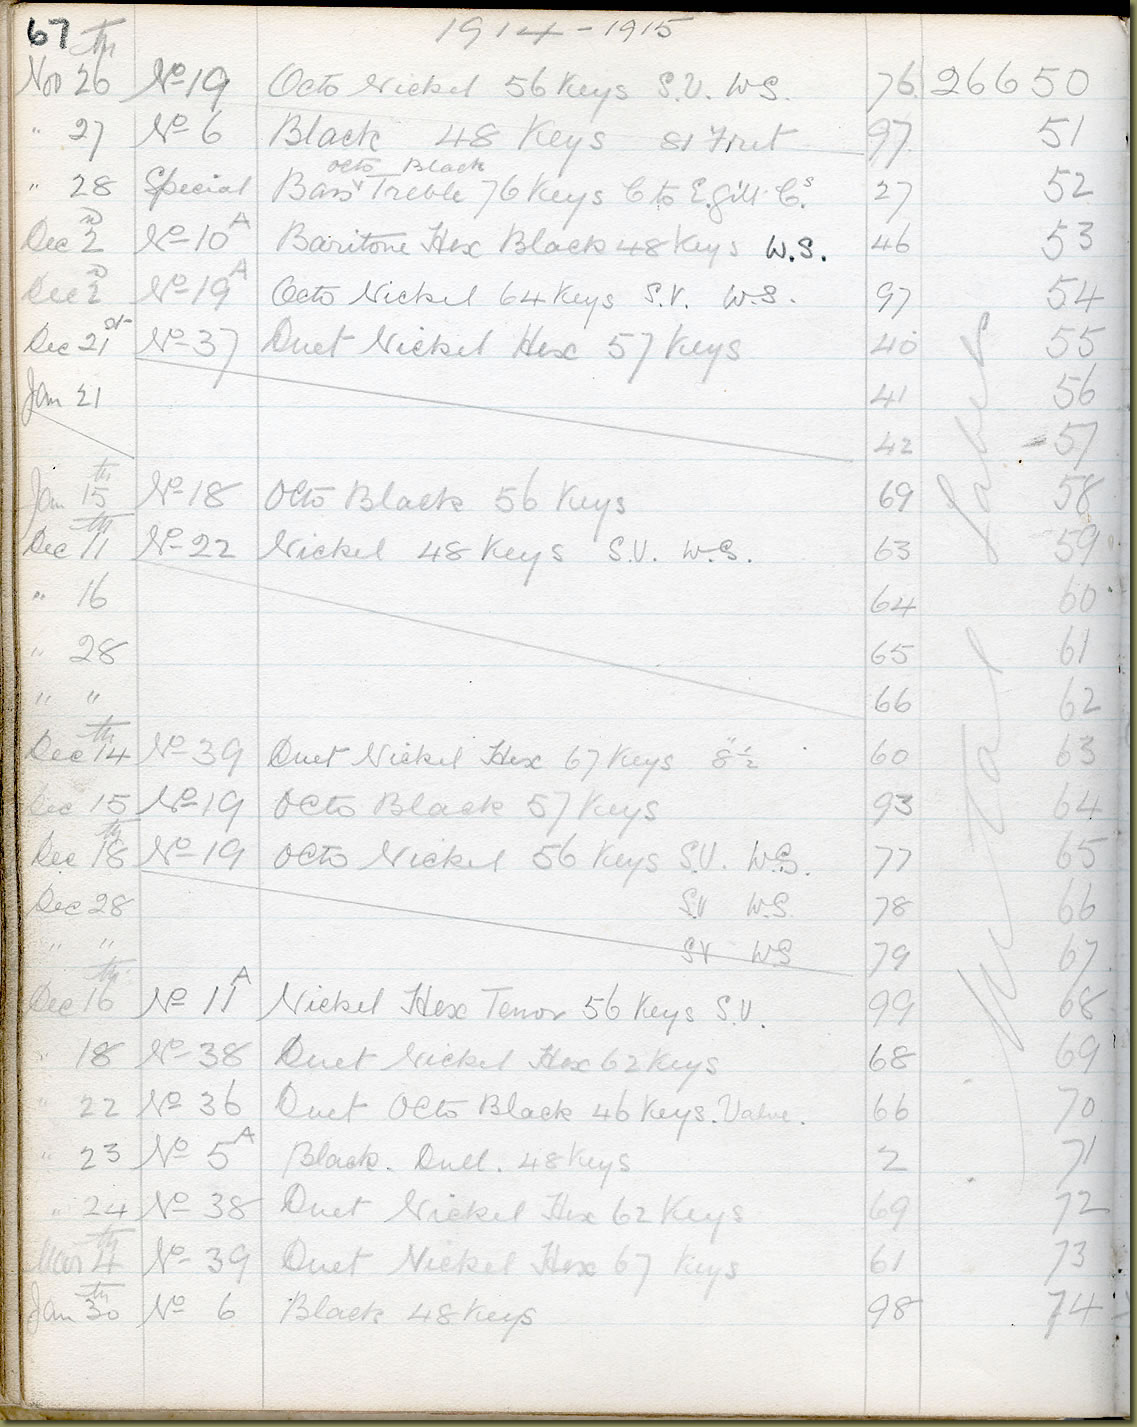 67 1914-1915
Nov 26th No 19 Octo Nickel 56 Keys S.V. W.S. 76 26650
" 27 No 6 Black 48 Keys 81 Fret 97 51
Octo Black
" 28 Special Bass Treble 76 Keys C to E. 27 52
Dec 2nd No 10A Baritone Hex Black 48 Keys W.S. 46 53
Dec 2nd No 19A Octo Nickel 64 Keys S.V. W.S. 97 54
Dec 21st No 37 Duet Nickel Hex 57 Keys 40 55
Jan 21 41 56
42 57
Jan 15th No 18 Octo Black 56 Keys 69 58
Dec 11th No 22 Nickel 48 Keys S.V. W.S. 63 59
" 16 64 60
" 28 65 61
" " 66 62
Dec 14th No 39 Duet Nickel Hex 67 Keys 8½" 60 63
Dec 15 No 19 Octo Black 57 Keys 93 64
Dec 18th No 19 Octo Nickel 56 Keys S.V. W.S. 77 65
Dec 28 S.V W.S. 78 66
" " S.V W.S 79 67
Dec 16th No 11A Nickel Hex Tenor 56 Keys S.V. 99 68
" 18 No 38 Duet Nickel Hex 62 Keys 68 69
" 22 No 36 Duet Octo Black 46 Keys. Valve. 66 70
" 23 No 5A Black. Dull. 48 Keys 2 71
" 24 No 38 Duet Nickel Hex 62 Keys 69 72
Mar 4th No 39 Duet Nickel Hex 67 Keys 61 73
Jan 30th No 6 Black 48 Keys 98 74